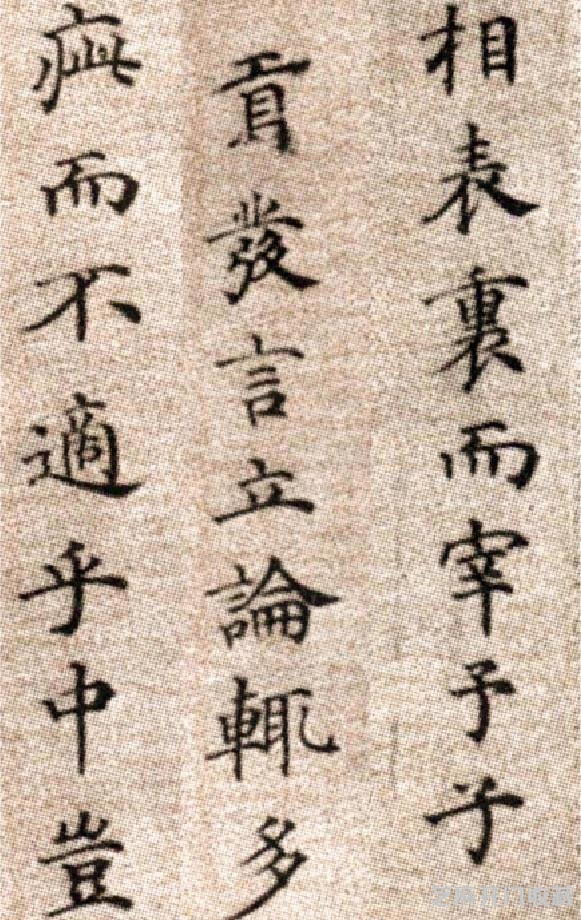 相表裏而宰予子
貢發言立論輒多
疵而不適乎中豈